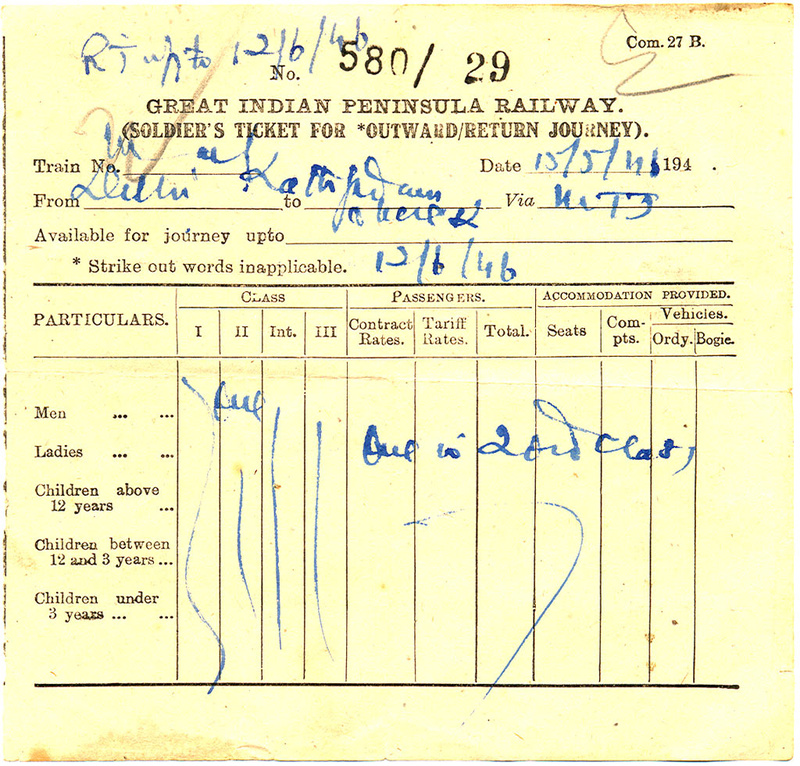 RJ upto 12/6/46
No. 580/ 29
Com. 27 B.
GREAT INDIAN PENINSULA RAILWAY.
(SOLDIER'S TICKET FOR *OUTWARD/RETURN JOURNEY).
Train No. Date 15/5/46 194 .
From Delhi to Kathgodam Via MTJ
& back
Available for journey upto
* Strike out words inapplicable. 12/6/46
PARTICULARS. CLASS PASSENGERS. ACCOMMODATION PROVIDED.
I II Int. III Contract Rates. Tariff Rates. Total. Seats Com-pts. Vehicles.
Ordy. Bogie.
Men ... ... One
Ladies ... ... One in 2nd Class
Children above
12 years ...
Children between
12 and 3 years ...
Children under
3 years ... ...